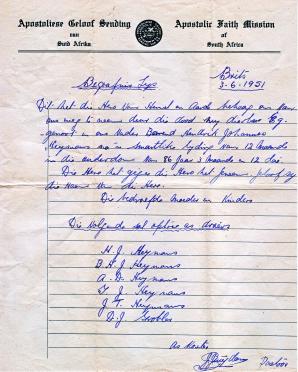 Apostoliese Geloof Sending
van
Suid Afrika
Apostolic Faith Mission
of
South Africa
Brits
3-6-1951
Begrafnis
Dit het die Heer van Hemel en Aarde behaag om van
ons weg te neem deur die dood my dierbare Eg-
genoot en ons Vader Barend Hendrik Johannes
Heymans na 'n smartlike lyding van 12 Maande
in die ouderdom van 86 Jaar 3 Maande en 12 dae.
Die Heer het gegee die Heer het geneem geloof sy
die Naam van die Heer.
Die bedroefde Moeder en Kinders
Die volgende sal optree as draers
H. J. Heymans
B. H. J. Heymans
A. D. Heymans
J. J. Heymans
J. T. Heymans
D. J. Grobler
as Koster
Pastoor